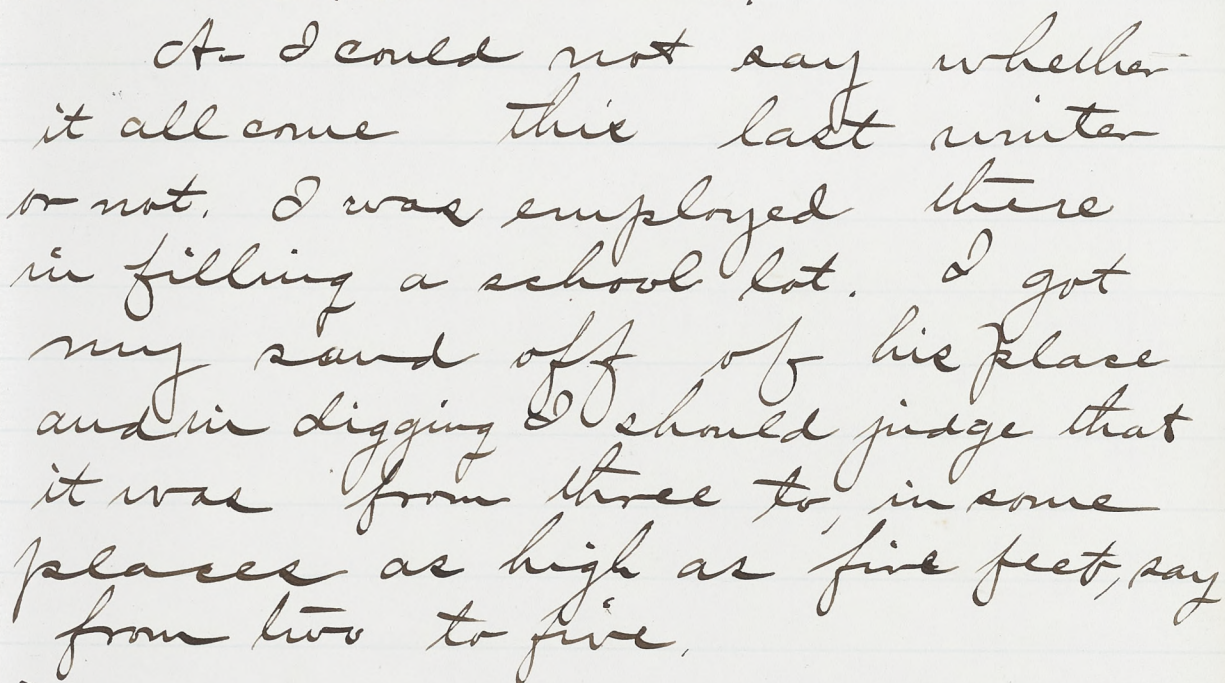 A- I could not say whether
it all come this last winter
or not. I was employed there
in filling a school lot. I got
my sand off of his place
and in digging I should judge that
it was from three to, in some
places as high as five feet, say
from two to five.